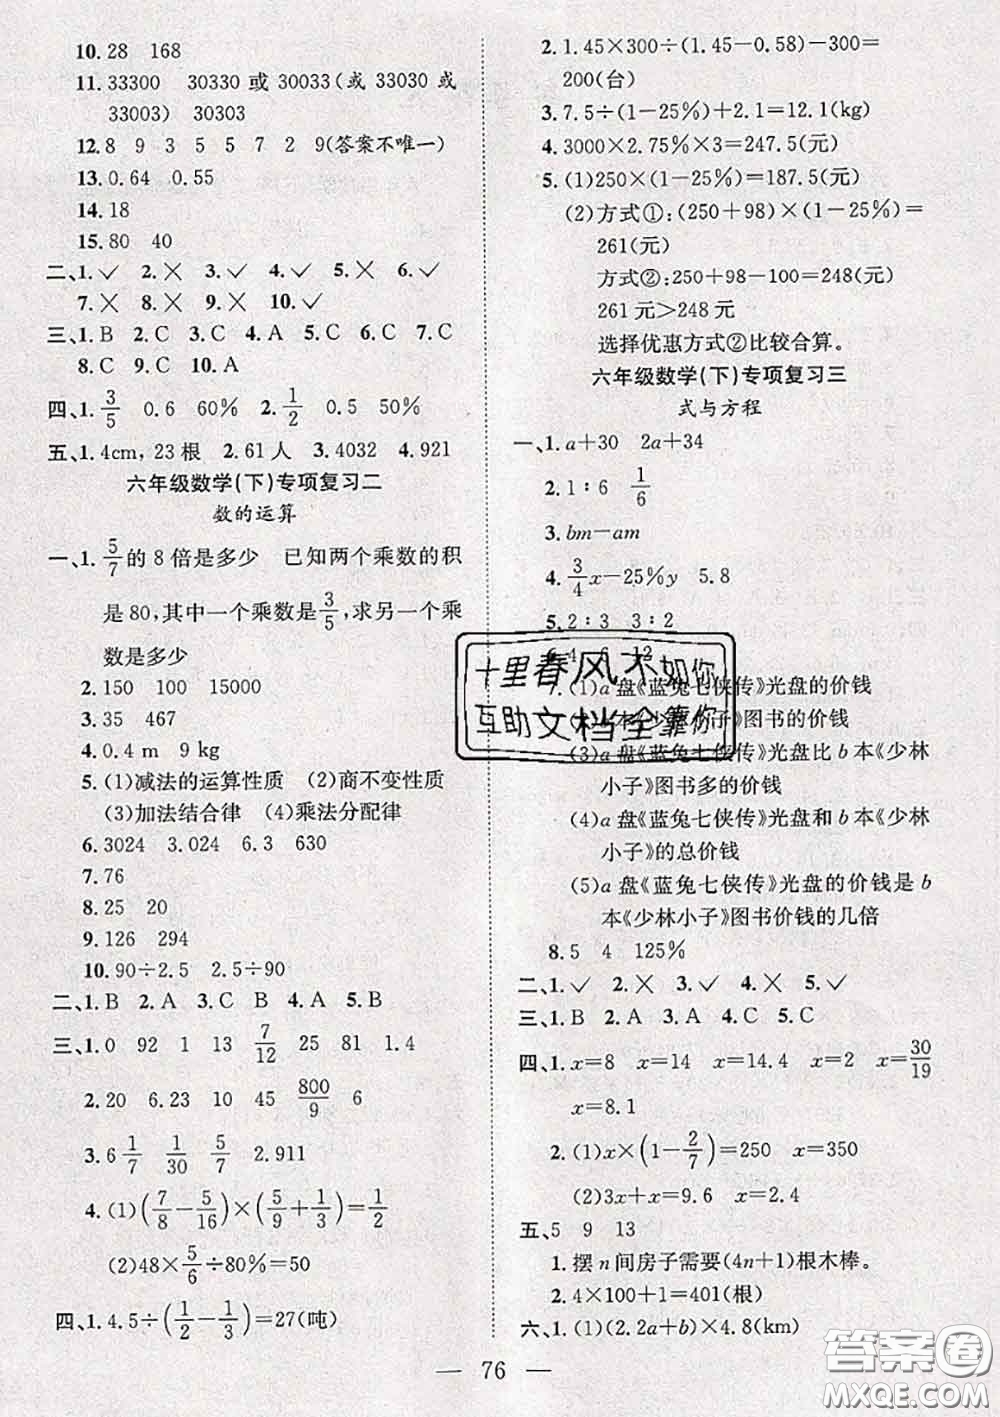 10. 28 168
11. 33300 30330 或 30033(或 33030 或
33003) 30303
12. 8 9 3 5 5 7 2 9(答案不唯一)
13. 0.64 0.55
14. 18
15. 80 40
二、1. ✓ 2. ✕ 3. ✓ 4. ✓ 5. ✕ 6. ✓
7. ✕ 8. ✕ 9. ✕ 10. ✓
三、1. B 2. C 3. C 4. A 5. C 6. C 7. C
8. C 9. C 10. A
四、1. 3/5 0.6 60% 2. 1/2 0.5 50%
五、1. 4cm, 23 根 2. 61 人 3. 4032 4. 921
六年级数学(下)专项复习二
数的运算
一、1. 5/7 的 8 倍是多少 已知两个乘数的积
是 80,其中一个乘数是 3/5,求另一个乘
数是多少
2. 150 100 15000
3. 35 467
4. 0.4 m 9 kg
5. (1)减法的运算性质 (2)商不变性质
(3)加法结合律 (4)乘法分配律
6. 3024 3.024 6.3 630
7. 76
8. 25 20
9. 126 294
10. 90÷2.5 2.5÷90
二、1. B 2. A 3. C B 4. A 5. B
三、1. 0 92 1 13 7/12 25 81 1.4
2. 20 6.23 10 45 800/9 6
3. 6 1/7 1/30 5/7 2.911
4. (1)(7/8－5/16)×(5/9＋1/3)＝1/2
(2)48×5/6÷80%＝50
四、1. 4.5÷(1/2－1/3)＝27(吨)
2. 1.45×300÷(1.45－0.58)－300＝
200(台)
3. 7.5÷(1－25%)＋2.1＝12.1(kg)
4. 3000×2.75%×3＝247.5(元)
5. (1)250×(1－25%)＝187.5(元)
(2)方式①:(250＋98)×(1－25%)＝
261(元)
方式②:250＋98－100＝248(元)
261 元＞248 元
选择优惠方式②比较合算。
六年级数学(下)专项复习三
式与方程
一、1. a＋30 2a＋34
2. 1∶6 1/6
3. bm－am
4. 3/4x－25%y 5.8
5. 2∶3 3∶2
6. 4 6 12
7. (1)a 盘《蓝兔七侠传》光盘的价钱
(2)b 本《少林小子》图书的价钱
(3)a 盘《蓝兔七侠传》光盘比 b 本《少林
小子》图书多的价钱
(4)a 盘《蓝兔七侠传》光盘和 b 本《少林
小子》的总价钱
(5)a 盘《蓝兔七侠传》光盘的价钱是 b
本《少林小子》图书价钱的几倍
8. 5 4 125%
二、1. ✓ 2. ✕ 3. ✓ 4. ✕ 5. ✓
三、1. B 2. A 3. A 4. C 5. C
四、1. x＝8 x＝14 x＝14.4 x＝2 x＝30/19
x＝8.1
2. (1)x×(1－2/7)＝250 x＝350
(2)3x＋x＝9.6 x＝2.4
五、5 9 13
1. 摆 n 间房子需要(4n＋1)根木棒。
2. 4×100＋1＝401(根)
六、1. (1)(2.2a＋b)×4.8(km)
十里春风不如你
互助文档全靠你
— 76 —
答案圈
MXQE.COM